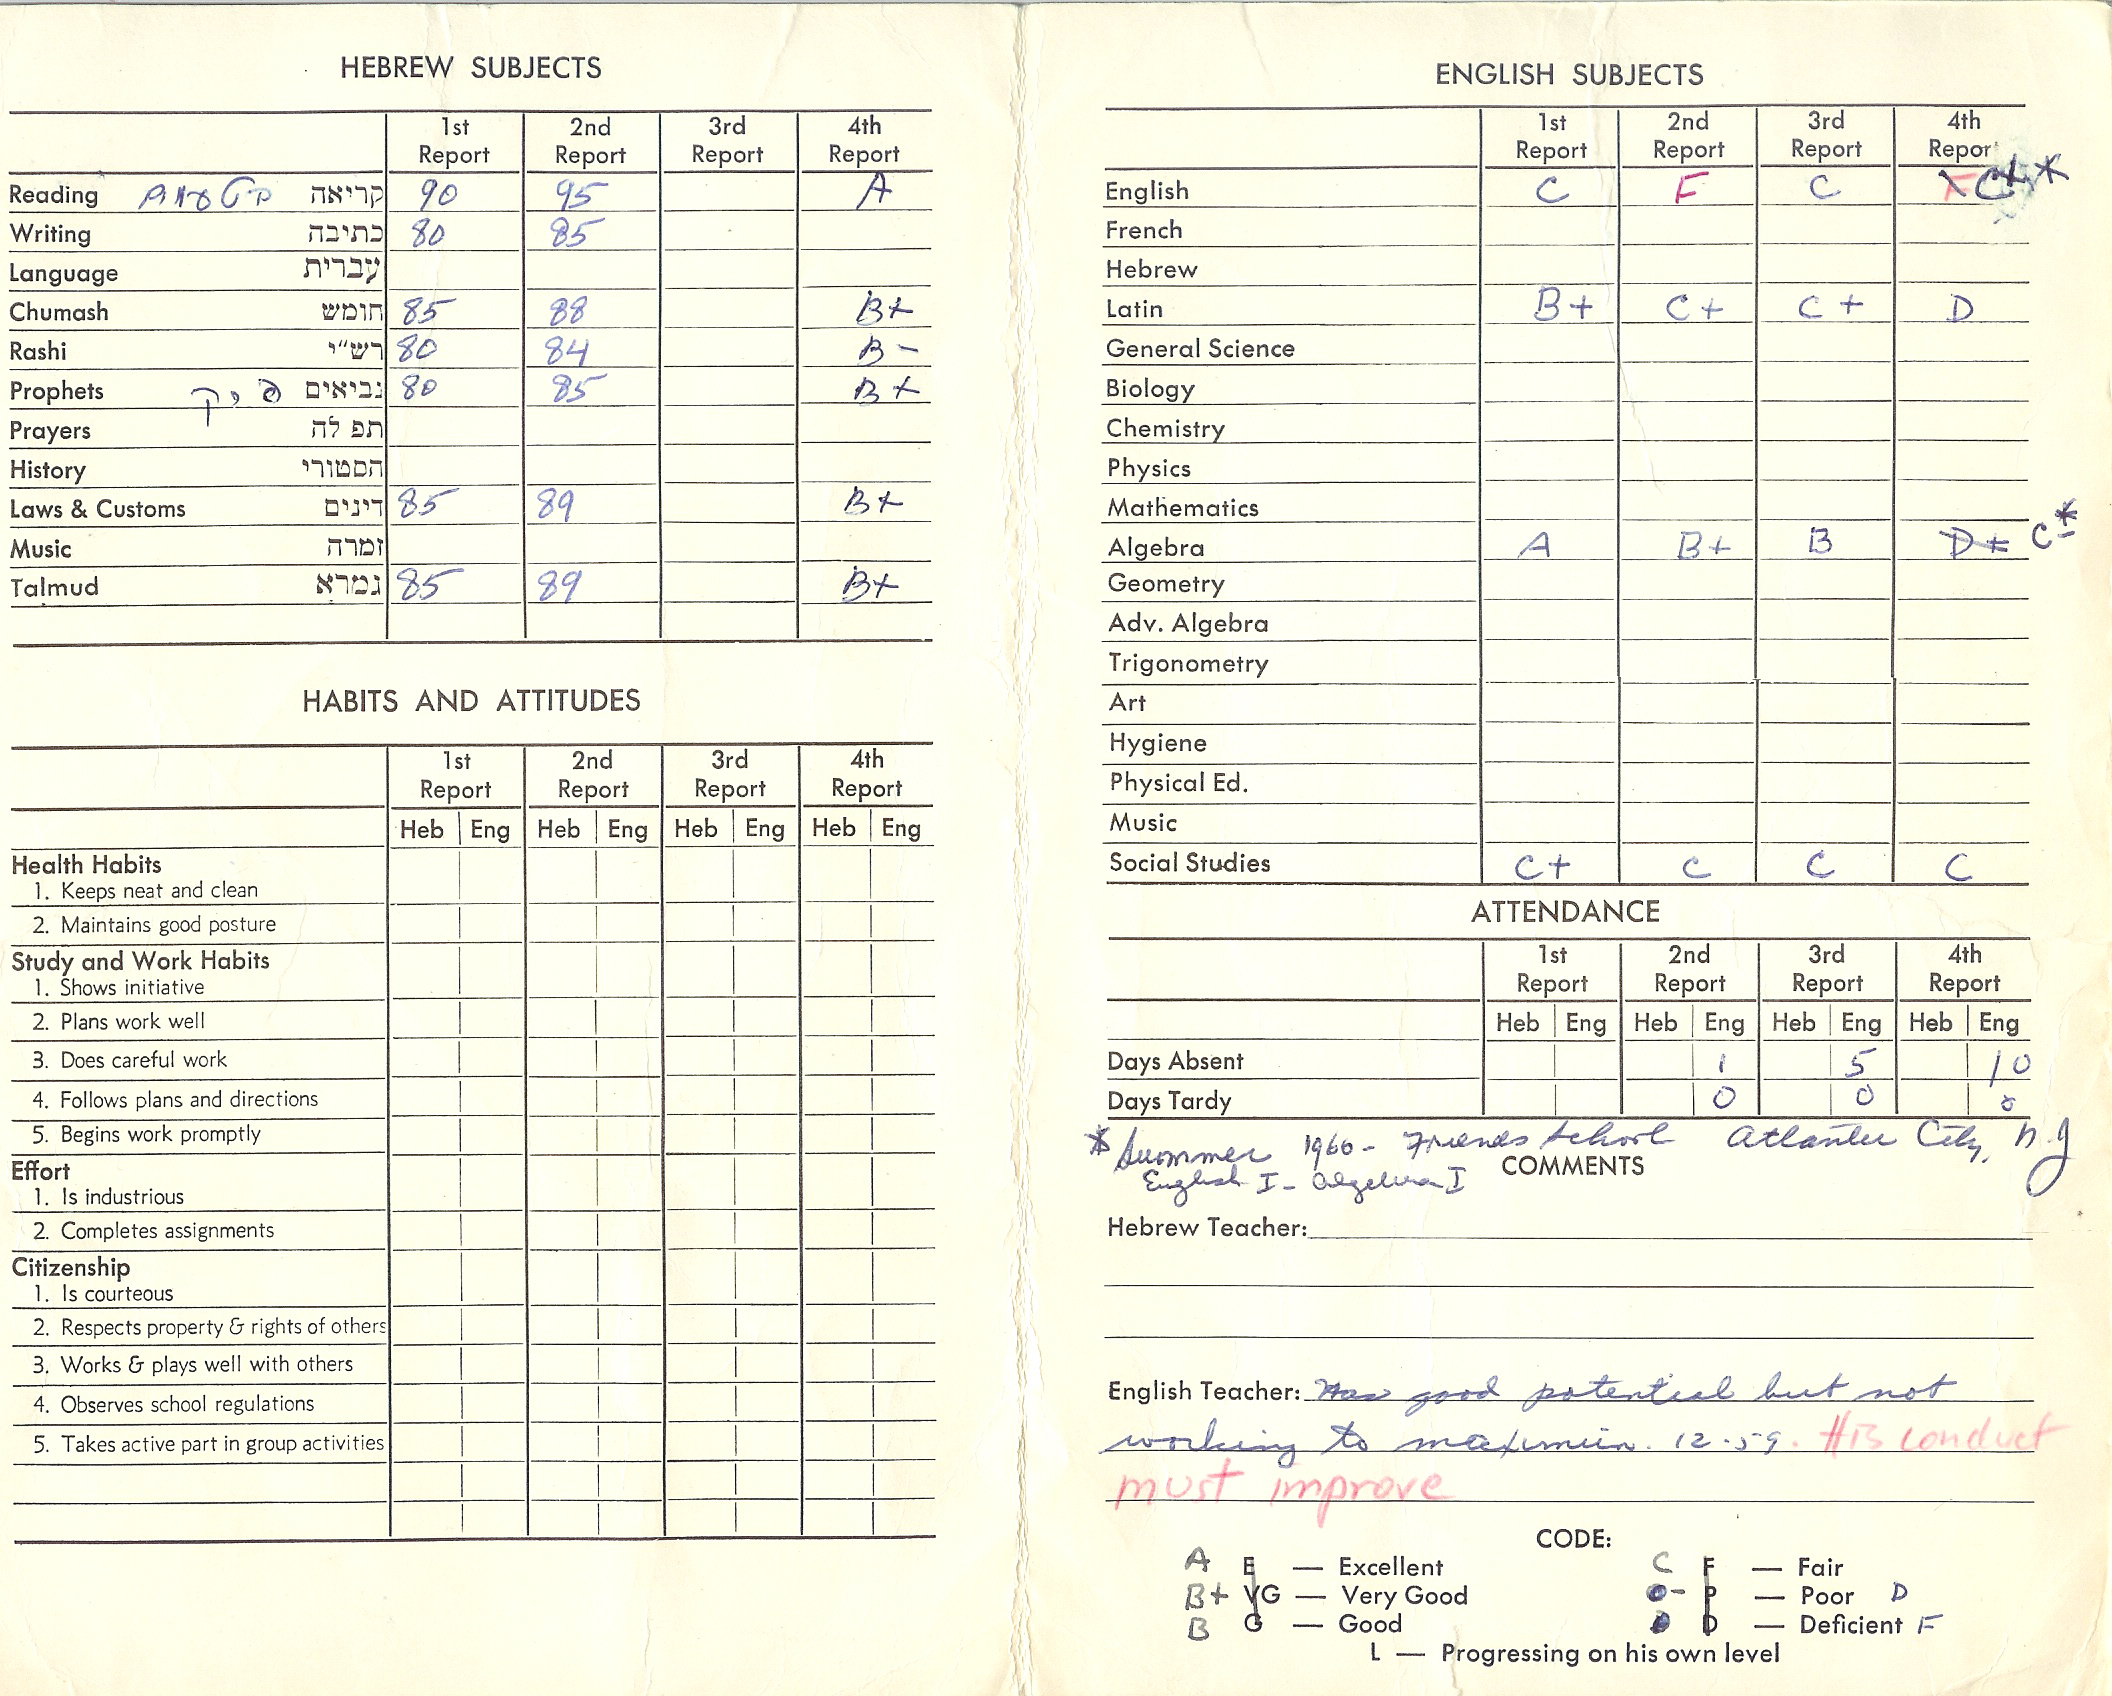 HEBREW SUBJECTS
1st Report 2nd Report 3rd Report 4th Report
Reading קריאה 90 95 A
Writing כתיבה 80 85
Language עברית
Chumash חומש 85 88 B+
Rashi רש״י 80 84 B-
Prophets נביאים 80 85 B+
Prayers תפ לה
History הסטורי
Laws & Customs דינים 85 89 B+
Music זמרה
Talmud גמרא 85 89 B+
HABITS AND ATTITUDES
1st Report 2nd Report 3rd Report 4th Report
Heb Eng Heb Eng Heb Eng Heb Eng
Health Habits
1. Keeps neat and clean
2. Maintains good posture
Study and Work Habits
1. Shows initiative
2. Plans work well
3. Does careful work
4. Follows plans and directions
5. Begins work promptly
Effort
1. Is industrious
2. Completes assignments
Citizenship
1. Is courteous
2. Respects property & rights of others
3. Works & plays well with others
4. Observes school regulations
5. Takes active part in group activities
ENGLISH SUBJECTS
1st Report 2nd Report 3rd Report 4th Report
English C F C F C+*
French
Hebrew
Latin B+ C+ C+ D
General Science
Biology
Chemistry
Physics
Mathematics
Algebra A B+ B D+ C-*
Geometry
Adv. Algebra
Trigonometry
Art
Hygiene
Physical Ed.
Music
Social Studies C+ C C C
ATTENDANCE
1st Report 2nd Report 3rd Report 4th Report
Heb Eng Heb Eng Heb Eng Heb Eng
Days Absent 1 5 10
Days Tardy 0 0 0
* Summer 1960 - Friends School Atlantic City, N.J
COMMENTS
English I - Algebra I
Hebrew Teacher:
English Teacher: Has good potential but not
working to maximum. 12-59. His conduct
must improve
CODE:
A E — Excellent C F — Fair
B+ VG — Very Good P — Poor D
B G — Good D — Deficient F
L — Progressing on his own level